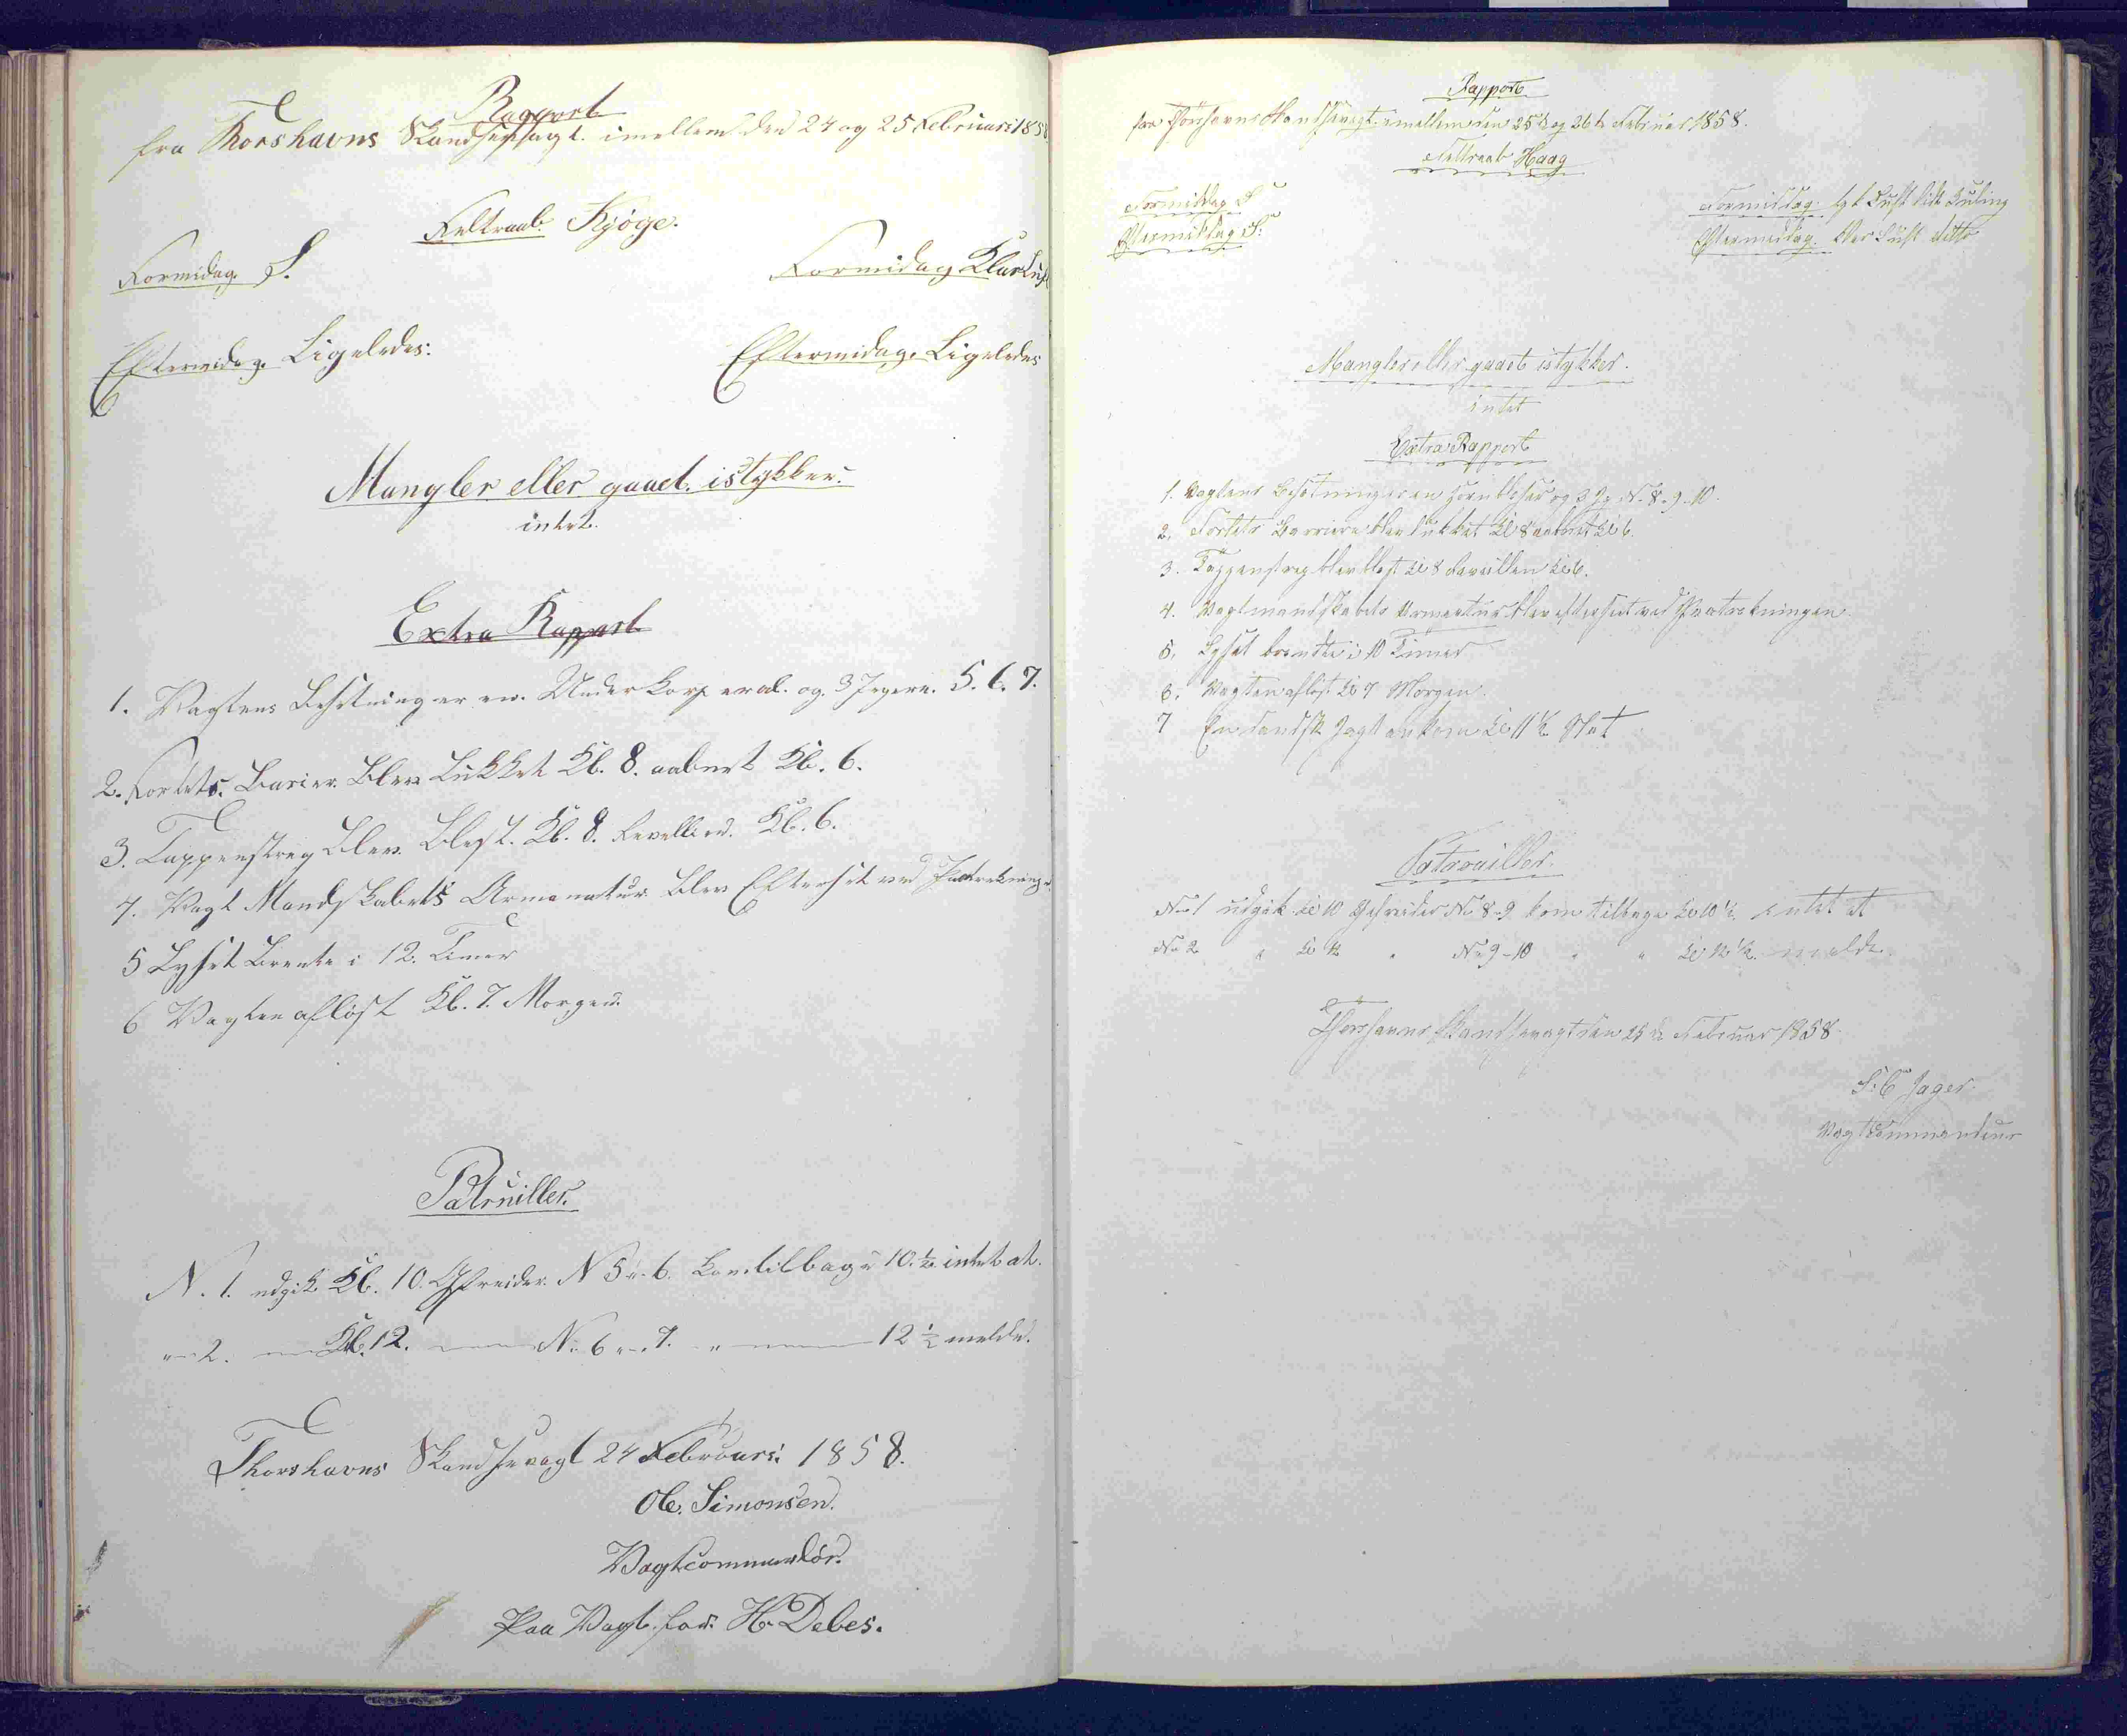 Rapport
fra Thorshavns Skandsevagt. imellem den 24 og 25 Februari 185
Feltraab. Kjöge.
Formidag. S.
Formidag Klar Luft
Eftermidag. Ligeledes:
Eftermidag. Ligeledes
Mangler eller gaaet. istykker.
intet.
Extra Rapport
1. Vagtens Besetning er en. Underkorperal. og. 3 Jegere. 5. 6. 7.
2. Fortets. Barier. Blev Lukket Kl. 8. aabnet Kl. 6.
3. Tappenstreg Blev. Blest. Kl. 8. Revellien. Kl. 6.
4. Vagt Mandskabets Armanatur. Blev Efterset ved
5 Lyset Brente i 12. Timer
6 Vagten aflöst Kl. 7. Morgen.
Patruiller.
N. 1. udgik Kl. 10. Gefreider. N 5 .. 6. kom tilbage 10. ½ intet at.
" 2. " Kl. 12. " N: 6 .. 7. " " 12 ½ melde.
Thorshavns Skandsevagt 24 Februari 1858.
Ole. Simonsen.
Vagtcommandör.
Paa Vagt. for. H. Debes.
Rapport
fra Thorshavns Skandsevagt imellem den 25de og 26de Februar 1858.
Feltraab Haag
Formiddag S
Eftermiddag S:
Formiddag. tyk Luft lidt Kuling
Eftermiddag. klar Luft ditto
Mangler eller gaaet istykker.
intet
Extra Rapport
1. Vagtens Besetning er en Hornbleser og 3 Jg. N. 8-9-10.
2. Fortets Barriere blev lukket Kl 8 aabnet Kl 6.
3. Tappenstreg blev blest Kl 8 Reveillen Kl 6.
4. Vagtmandskabets Armatur blev efterseet ved
5. Lyset brendte i 10 Timer
6. Vagten aflöst Kl 7 Morgen.
7 En dansk Jagt ankom Kl 11 ½ Nat
Patrouiller.
No 1 udgik Kl 10 Gefreider No 8-9 kom tilbage Kl 10 ½ intet at
No 2 " Kl 12 " No 9-10 " " Kl 12 ½ melde.
Thorshavns Skandsevagt den 25de Februar 1858
S. C Jager
Vagtkommandeur